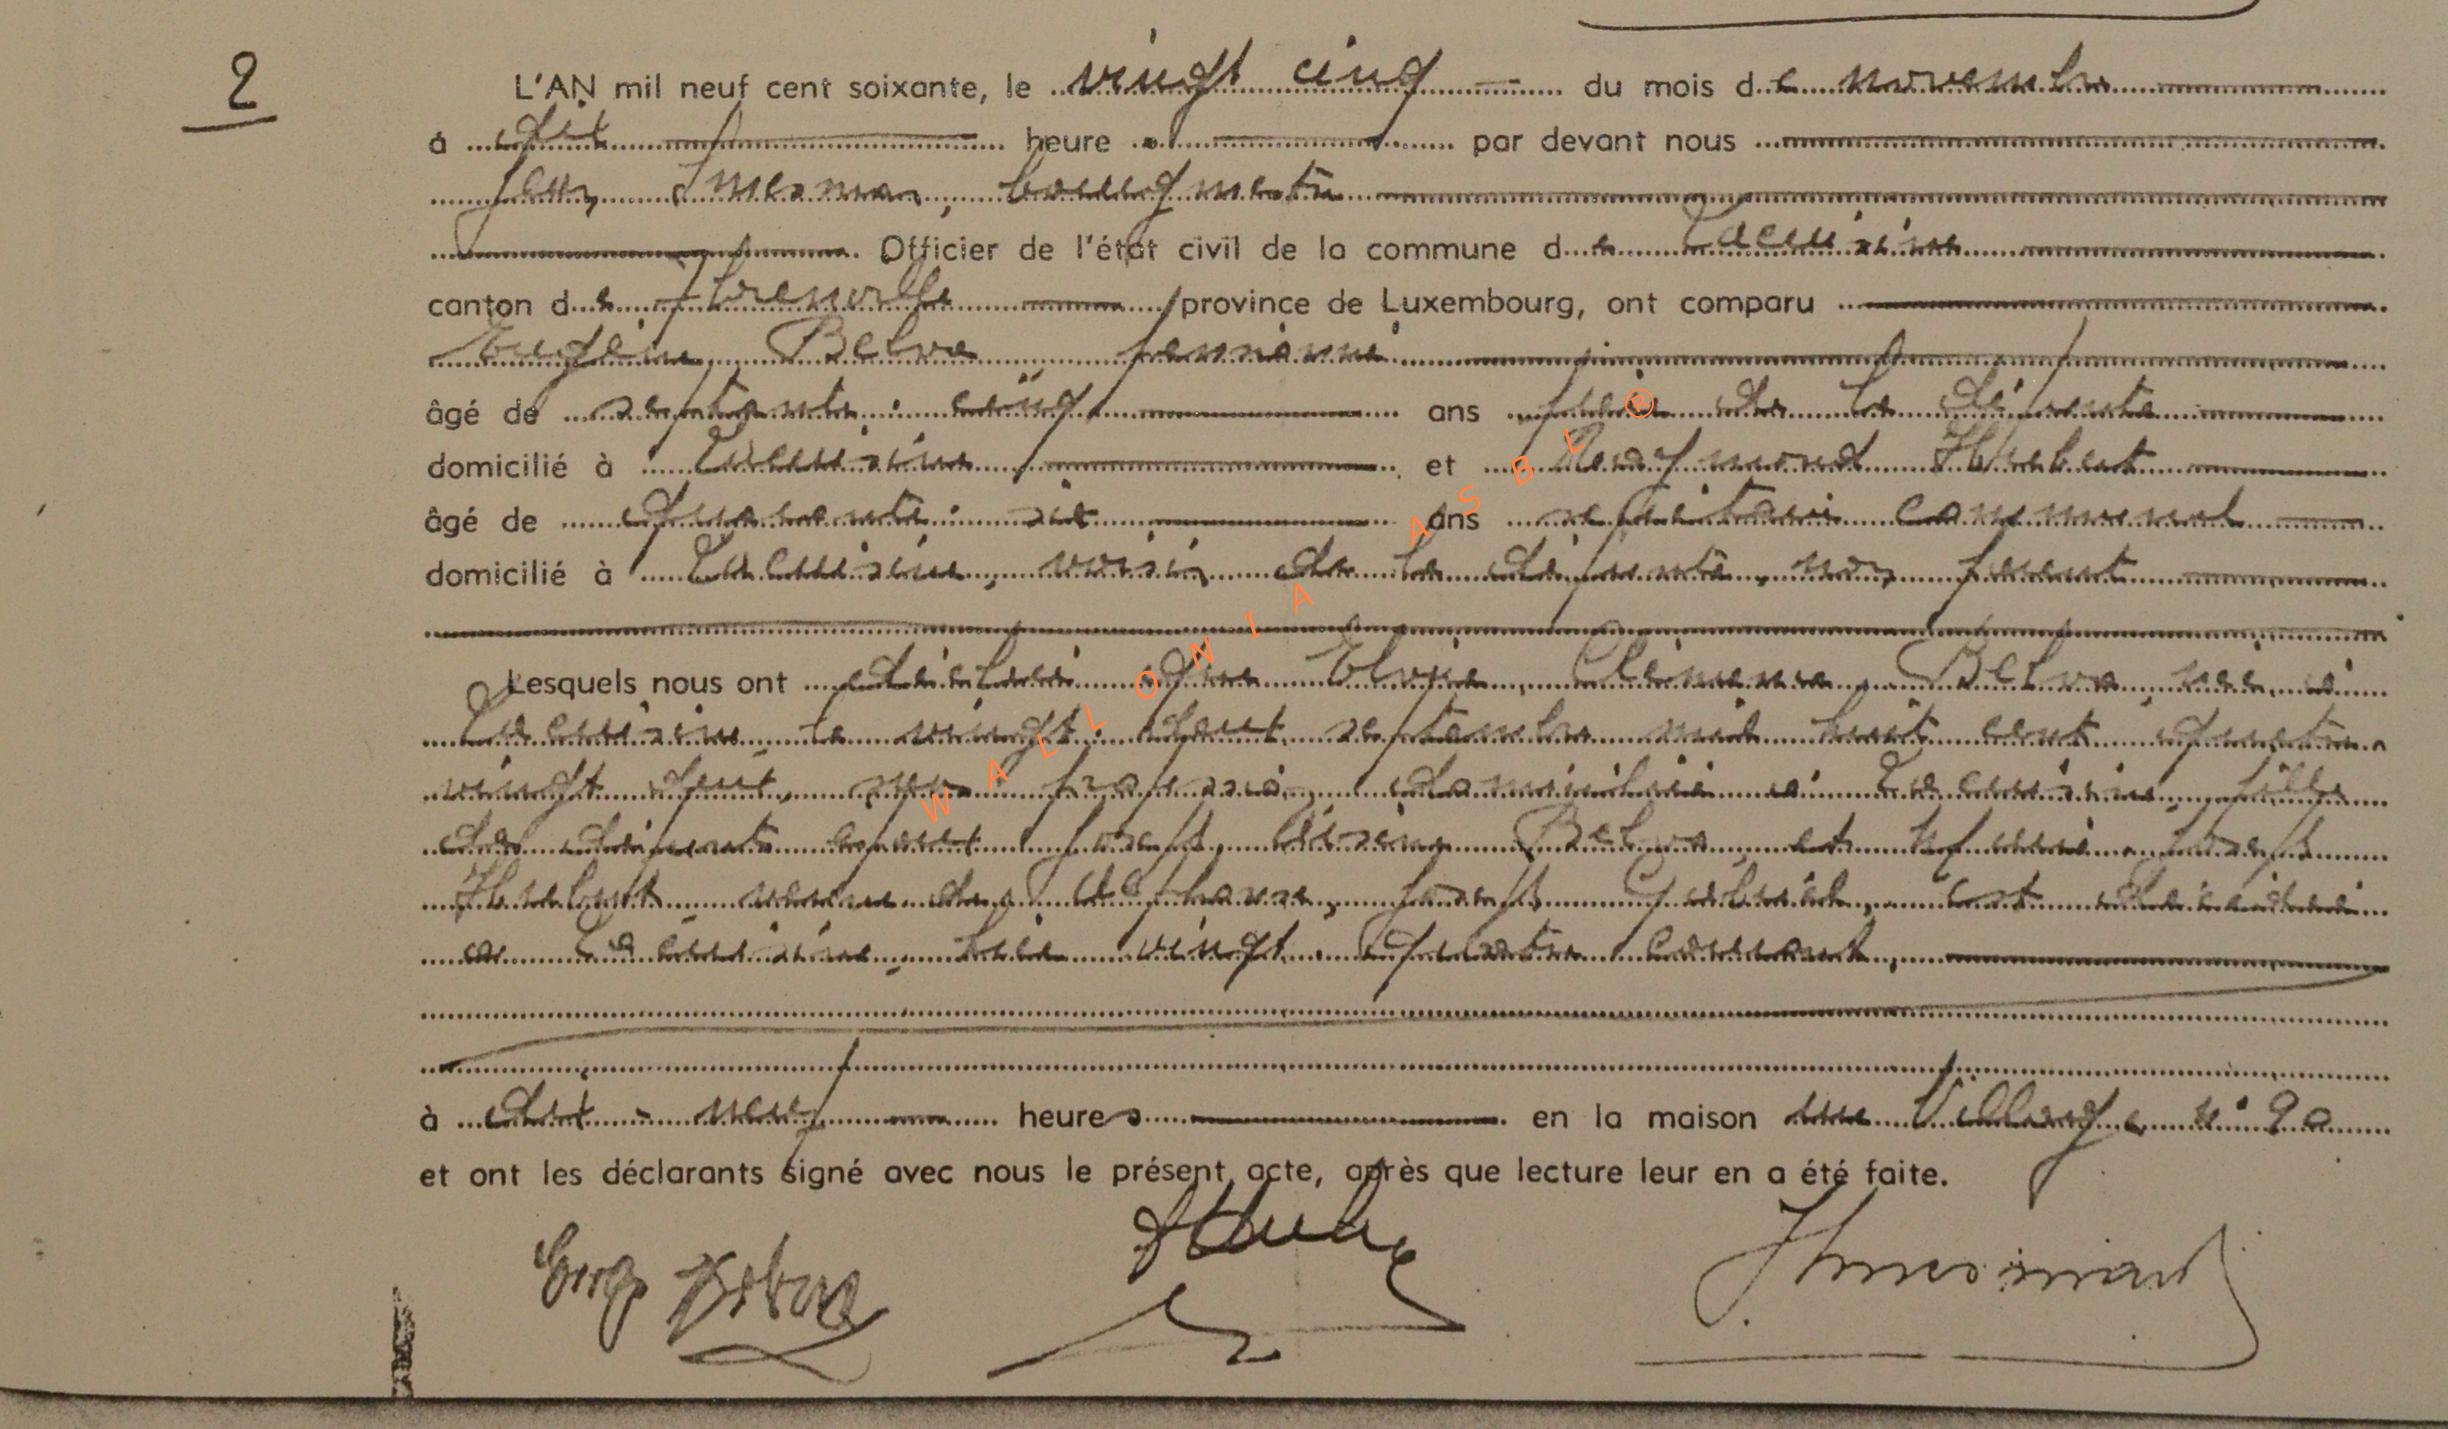 2
L'AN mil neuf cent soixante, le vingt cinq du mois de novembre
à dix heures par devant nous
Jean bourgmestre
Officier de l'état civil de la commune de Lacuisine
canton de Florenville province de Luxembourg, ont comparu
Eugène Belva pensionné
âgé de septante-cinq ans frère de la défunte
domicilié à Lacuisine et Raymond Hubert
âgé de quarante-six ans secrétaire communal
domicilié à Lacuisine, voisin de la défunte, non parent
Lesquels nous ont déclaré que Elvire, Belva, née à
Lacuisine le vingt-deux septembre mil huit cent quatre-
vingt deux, sans profession, domiciliée à Lacuisine, fille
de défunts époux Joseph, Belva, et Joseph
Hubert, veuve de Alphonse, Joseph est décédée
à Lacuisine, hier vingt-quatre courant,
à dix-neuf heures en la maison rue Village n° 90
et ont les déclarants signé avec nous le présent acte, après que lecture leur en a été faite.
WALLONIA ASBL ®